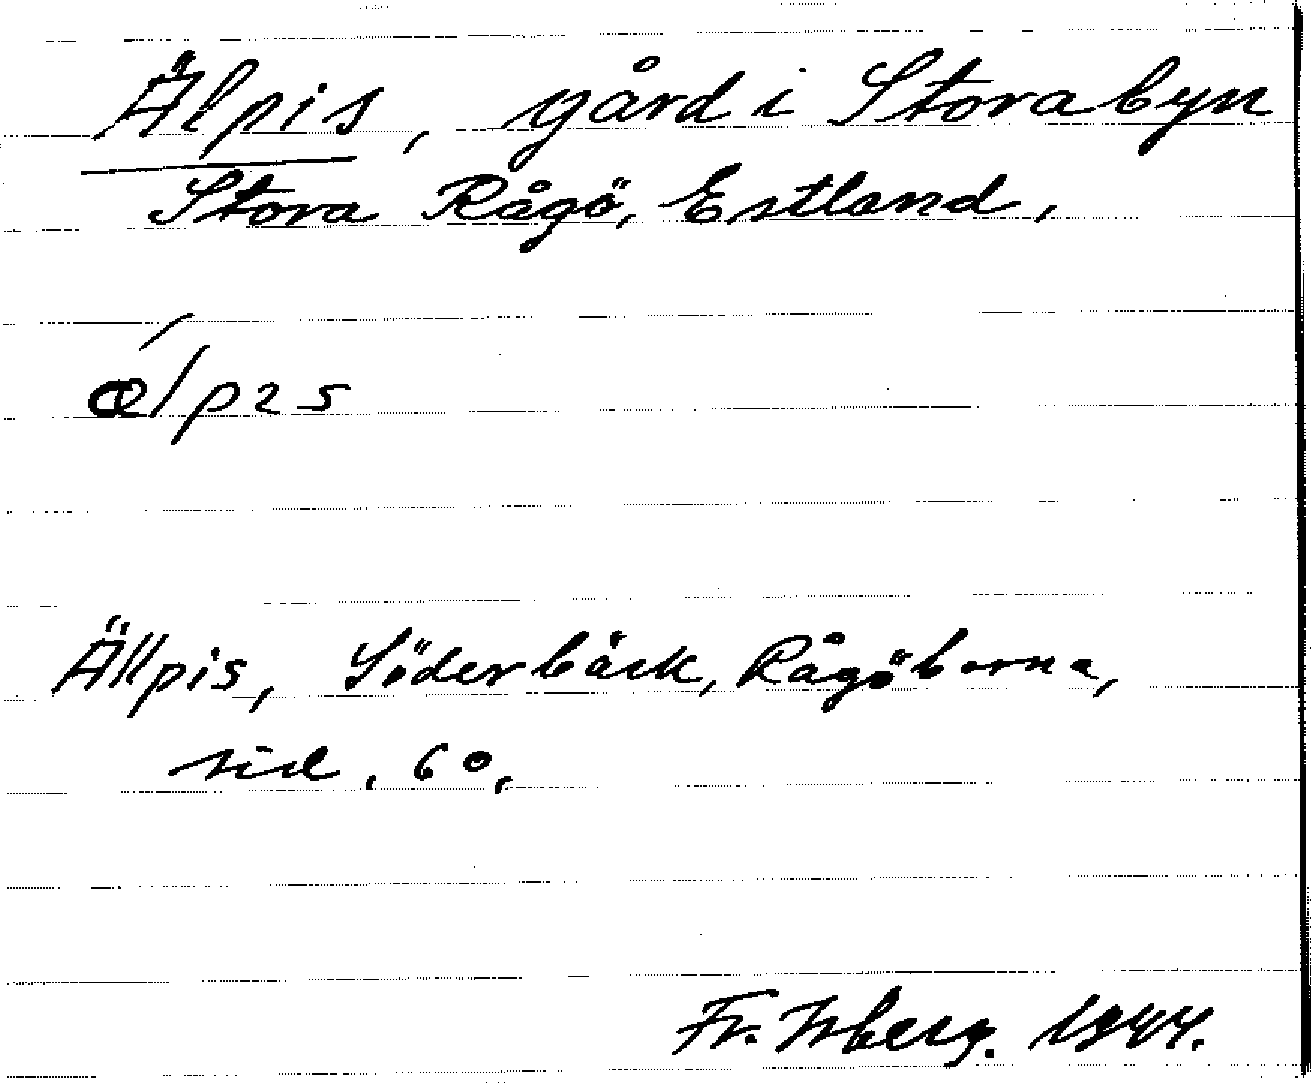 Älpis, gård i Storabyn
Stora Rågö, Estland.
ælpɩs
Ällpis, Söderbäck, Rågöborna,
sid. 60.
Fr. Isberg. 1944.